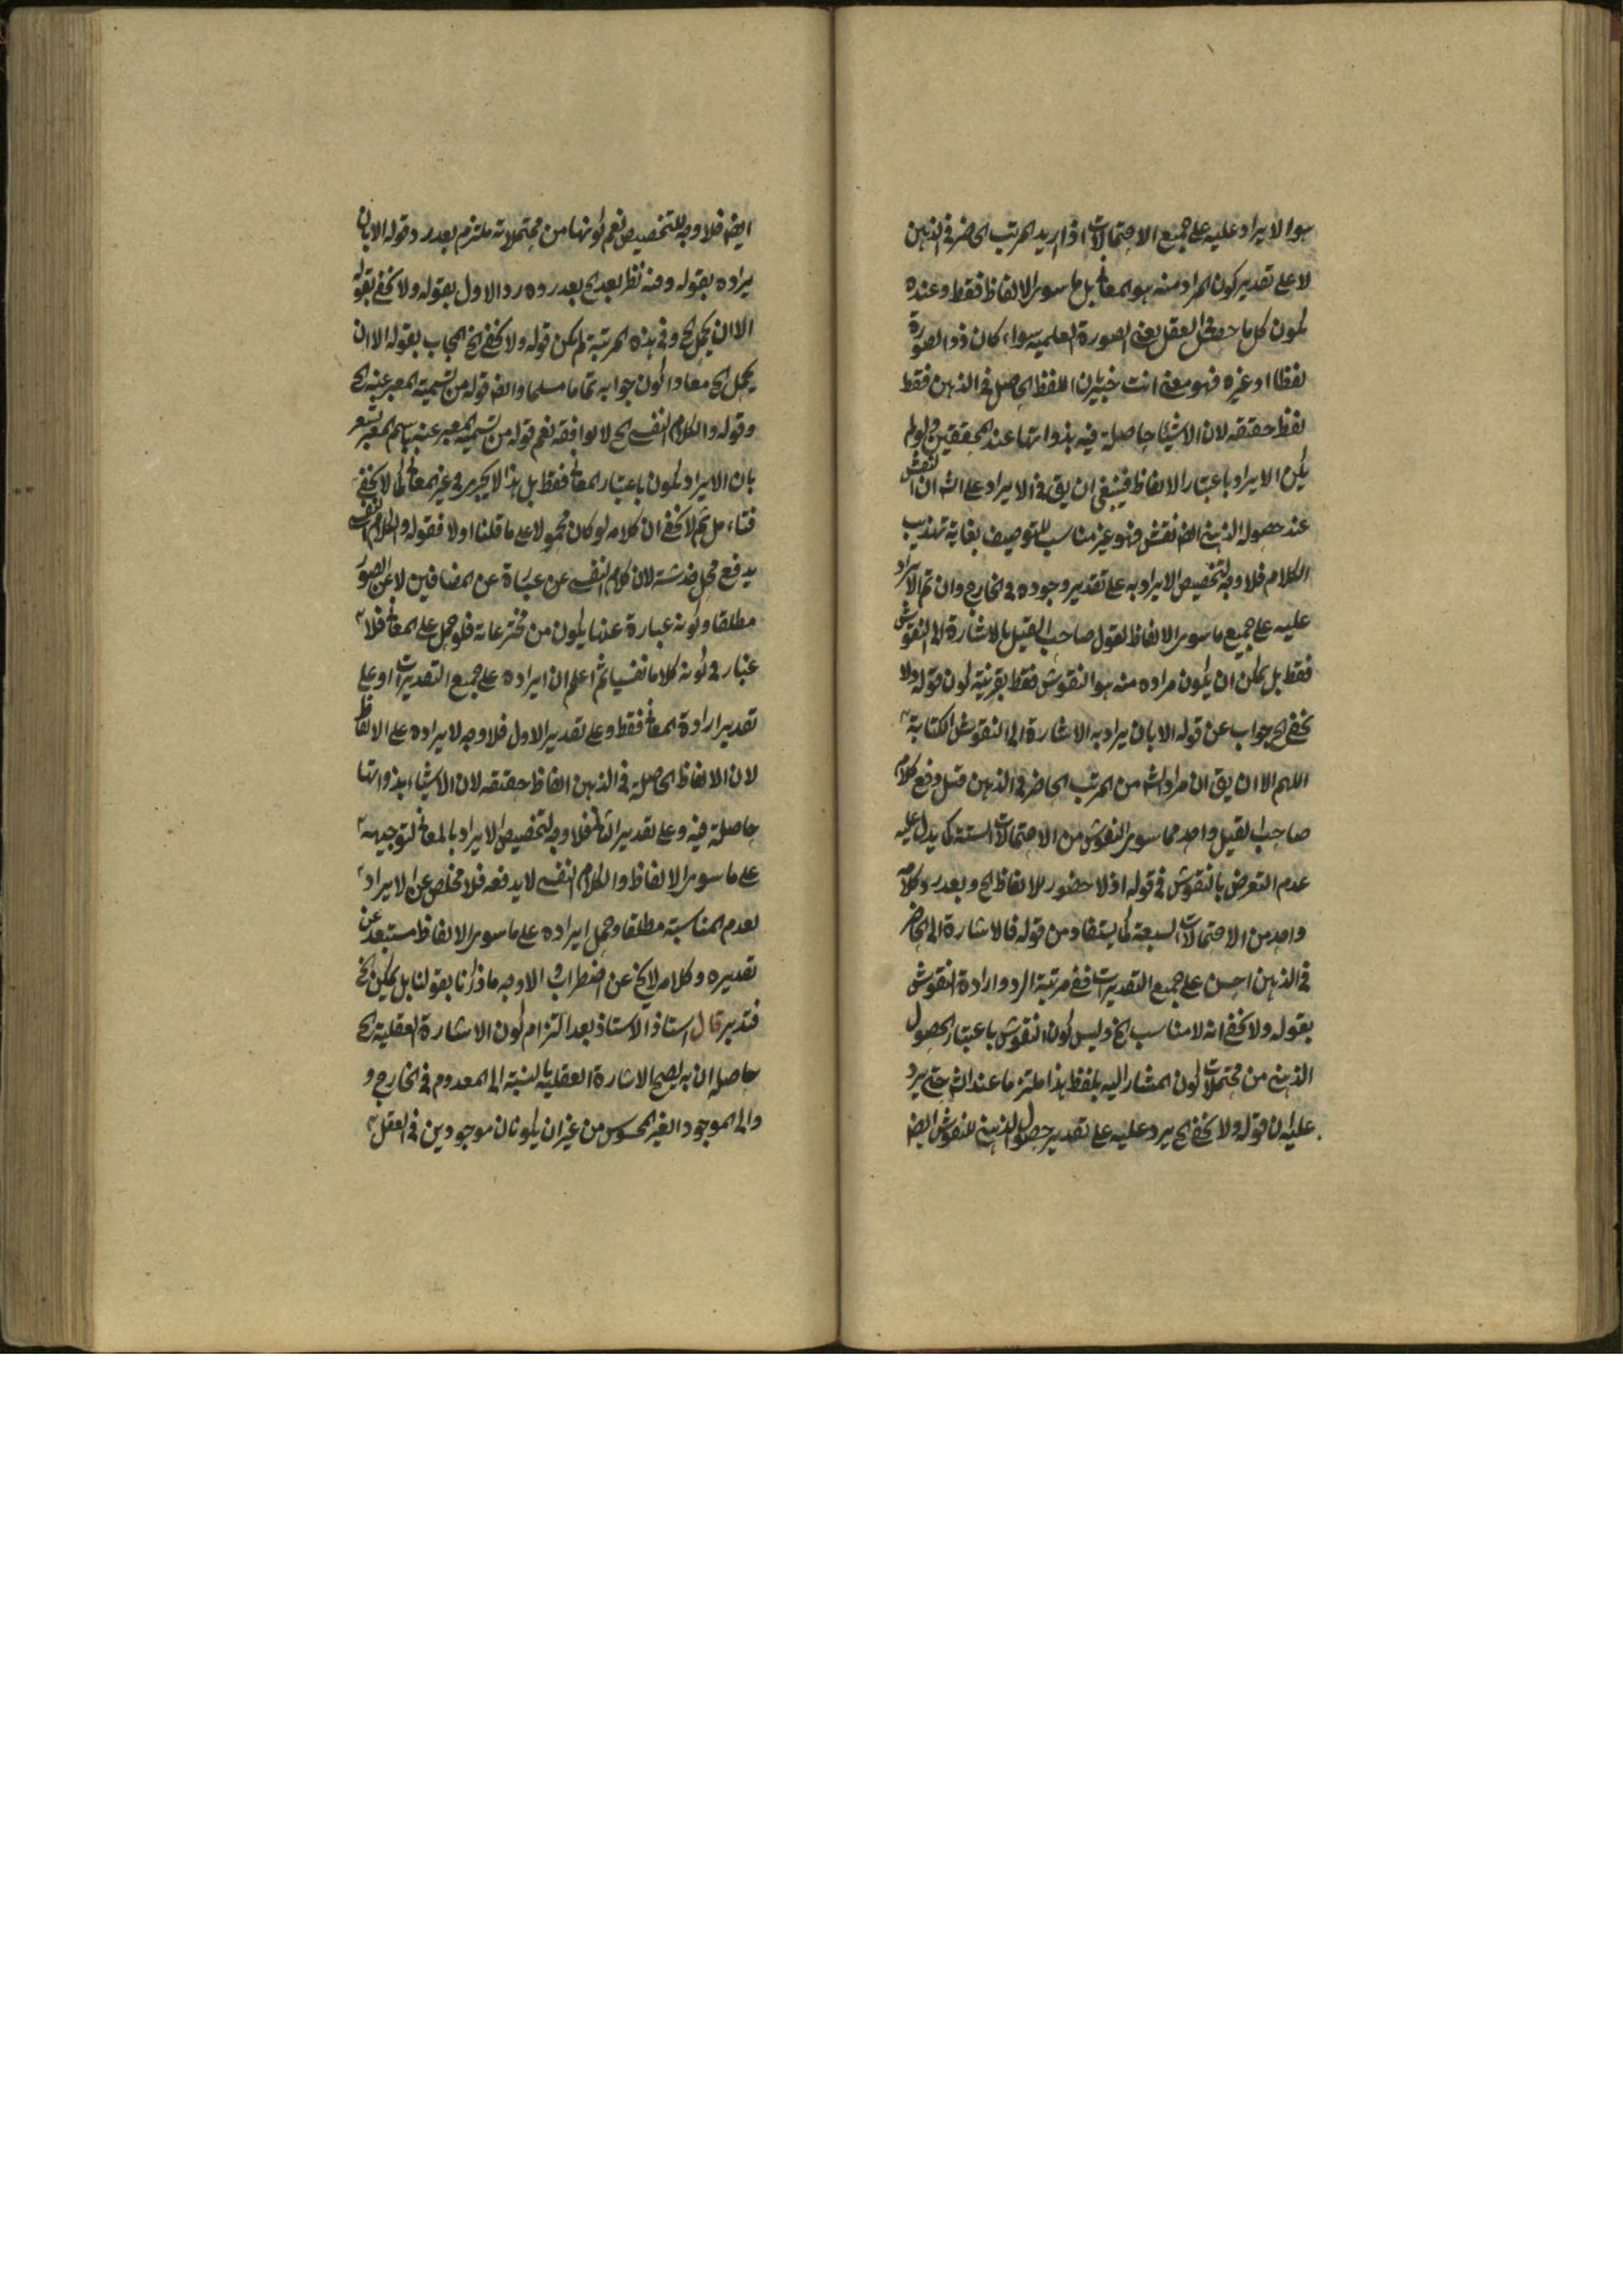 هو الايراد عليه على جميع الاحتمالات اذا اريد المرتب الحاضر في الذهن
لا على تقدير كون المراد منه هو المعاني بل ما سوى الالفاظ فقط وعنده
يكون كل ما حصل في العقل يعني الصورة العلمية سواء كان ذو الصورة
لفظا او غيره فهو معنى انت خبير بان اللفظ الحاصل في الذهن فقط
لفظ حقيقة لان الاشياء حاصلة فيه بذواتها عند المحققين ولو لم
يكن الايراد باعتبار الالفاظ فينبغي ان يق في الايراد على الش ان النقش
عند حصوله الذهني ايض نقش فهو غير مناسب للتوصيف بغاية تهذيب
الكلام فلا وجه لتخصيص الايراد به على تقدير وجوده في الخارج وان تم الايراد
عليه على جميع ما سوى الالفاظ لقول صاحب القيل بالاشارة الى النقوش
فقط بل يمكن ان يكون مراده منه هو النقوش فقط بقرينة كون قوله ولا
يخفى الخ جواب عن قوله الا بان يراد به الاشارة الى النقوش الكتابة
اللهم الا ان يق ان مراد الش من المرتب الحاضر في الذهن قبل دفع كلام
صاحب القيل واحد مما سوى النقوش من الاحتمالات الستة كما يدل عليه
عدم التعرض بالنقوش في قوله اذ لا حضور للالفاظ الخ وبعد رد كلامه
واحد من الاحتمالات السبعة كما يستفاد من قوله فالاشارة الى الحاضر
في الذهن احسن على جميع التقديرات ففي مرتبة الرد وارادة النقوش
بقوله ولا يخفى انه لا مناسب الخ وليس كون النقوش باعتبار الحصول
الذهني من محتملات كون المشار اليه بلفظ هذا ملتزما عند الش حتى يرد
عليه ان قوله ولا يخفى الخ يرد عليه على تقدير حصول الذهني للنقوش ايض
ايض فلا وجه للتخصيص نعم كونها من محتملاته ملتزم بعد رد قوله الا بان
يراده بقوله وفيه نظر بعد الخ بعد رده رد الاول بقوله ولا يخفى بقوله
الا ان يحمل الخ وفي هذه المرتبة لم يكن قوله ولا يخفى الخ المجاب بقوله الا ان
يحمل الخ معادا كون جوابه تماما مسلما وايض قوله من تسمية المعبر عنه الخ
وقوله والكلام النفسي الخ لا يوافقه نعم قوله من تسمية المعبر عنه باسم المعبر يشعر
بان الايراد يكون باعتبار المعاني فقط بل هذا لا يجري في غير المعاني كما لا يخفى
فتامل ثم لا يخفى ان كلامه لو كان محمولا على ما قلنا اولا فقوله والكلام النفسي
يدفع محل خدشة لان كلام النفسي عن عبارة عن المضافين لا عن الصور
مطلقا وكونه عبارة عنها يكون من مخترعاته فلو حمل على المعاني فلا
غبار في كونه كلاما نفسيا ثم اعلم ان ايراده على جميع التقديرات او على
تقدير ارادة المعاني فقط وعلى تقدير الاول فلا وجه لايراده على الالفاظ
لان الالفاظ الحاصلة في الذهن الفاظ حقيقة لان الاشياء بذواتها
حاصلة فيه وعلى تقدير الثاني فلا وجه لتخصيص الايراد بالمعاني لتوجيهه
على ما سوى الالفاظ والكلام النفسي لا يدفعه فلا مخلص عن الايراد
لعدم المناسبة مطلقا وحمل ايراده على ما سوى الالفاظ مستبعد عن
تقديره وكلامه لا يخ عن اضطراب والاوجه ما ذكرنا بقولنا بل يمكن الخ
فتدبر قال استاذ الاستاذ بعد التزام كون الاشارة العقلية الخ
حاصله ان به يصح الاشارة العقلية بالنسبة الى المعدوم في الخارج و
والى الموجود الغير المحسوس من غير ان يكونان موجودين في العقل